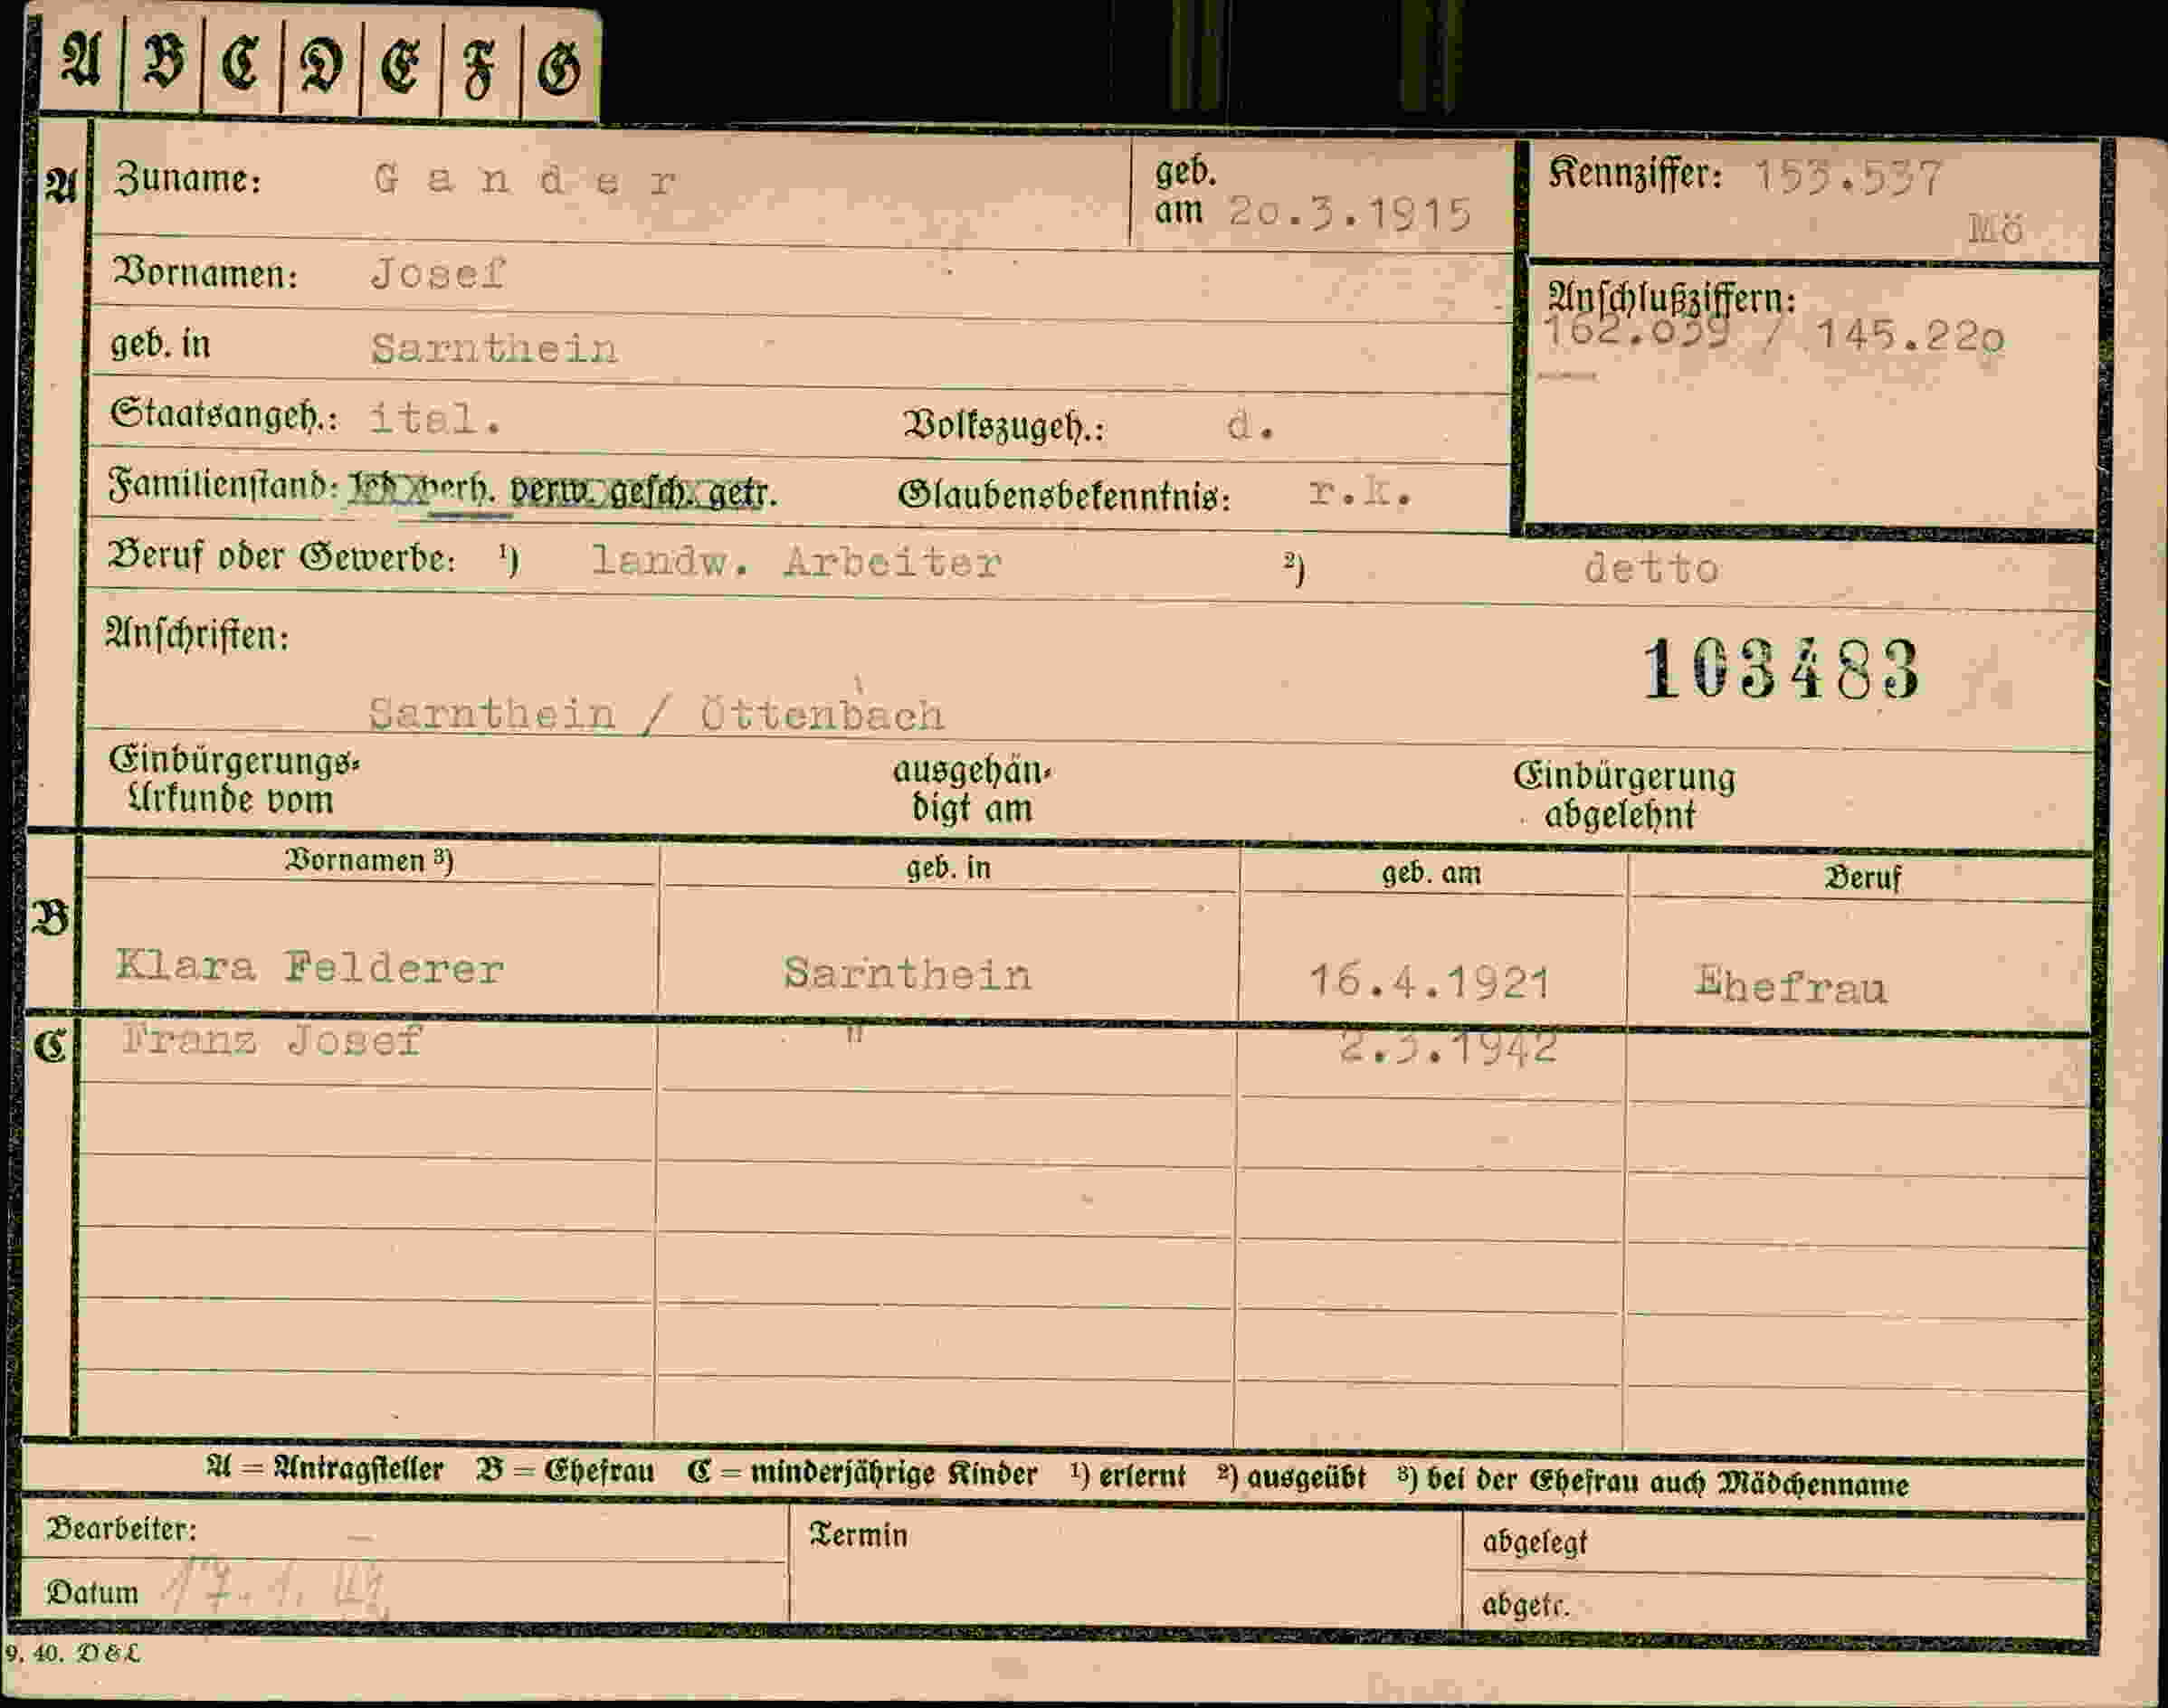 A B C D E F G
A Zuname: Gander geb. am 20.3.1915 Kennziffer: 153.537
Mö
Vornamen: Josef
Anschlußziffern:
162.039 / 145.220
geb. in Sarnthein
Staatsangeh.: ital. Volkszugeh.: d.
Familienstand: verh. verw. gesch. getr. Glaubensbekenntnis: r.k.
Beruf oder Gewerbe: ¹) landw. Arbeiter ²) detto
Anschriften:
103483
Sarnthein / Öttenbach
Einbürgerungs- ausgehän- Einbürgerung
Urkunde vom digt am abgelehnt
Vornamen ³) geb. in geb. am Beruf
B
Klara Felderer Sarnthein 16.4.1921 Ehefrau
C Franz Josef " 2.3.1942
A = Antragsteller B = Ehefrau C = minderjährige Kinder ¹) erlernt ²) ausgeübt ³) bei der Ehefrau auch Mädchenname
Bearbeiter: Termin abgelegt
Datum 17.1. abgetr.
9. 40. D & L